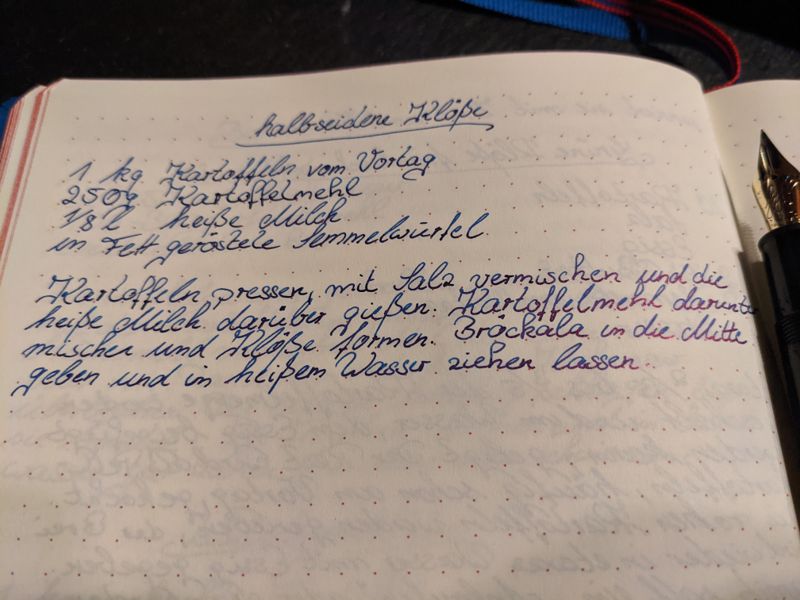 halbseidene Klöße
1 kg Kartoffeln vom Vortag
250g Kartoffelmehl
1/8 l heiße Milch
in Fett geröstete Semmelwürfel
Kartoffeln pressen, mit Salz vermischen und die
heiße Milch darüber gießen. Kartoffelmehl darunter
mischen und Klöße formen. Bröckala in die Mitte
geben und in heißem Wasser ziehen lassen.